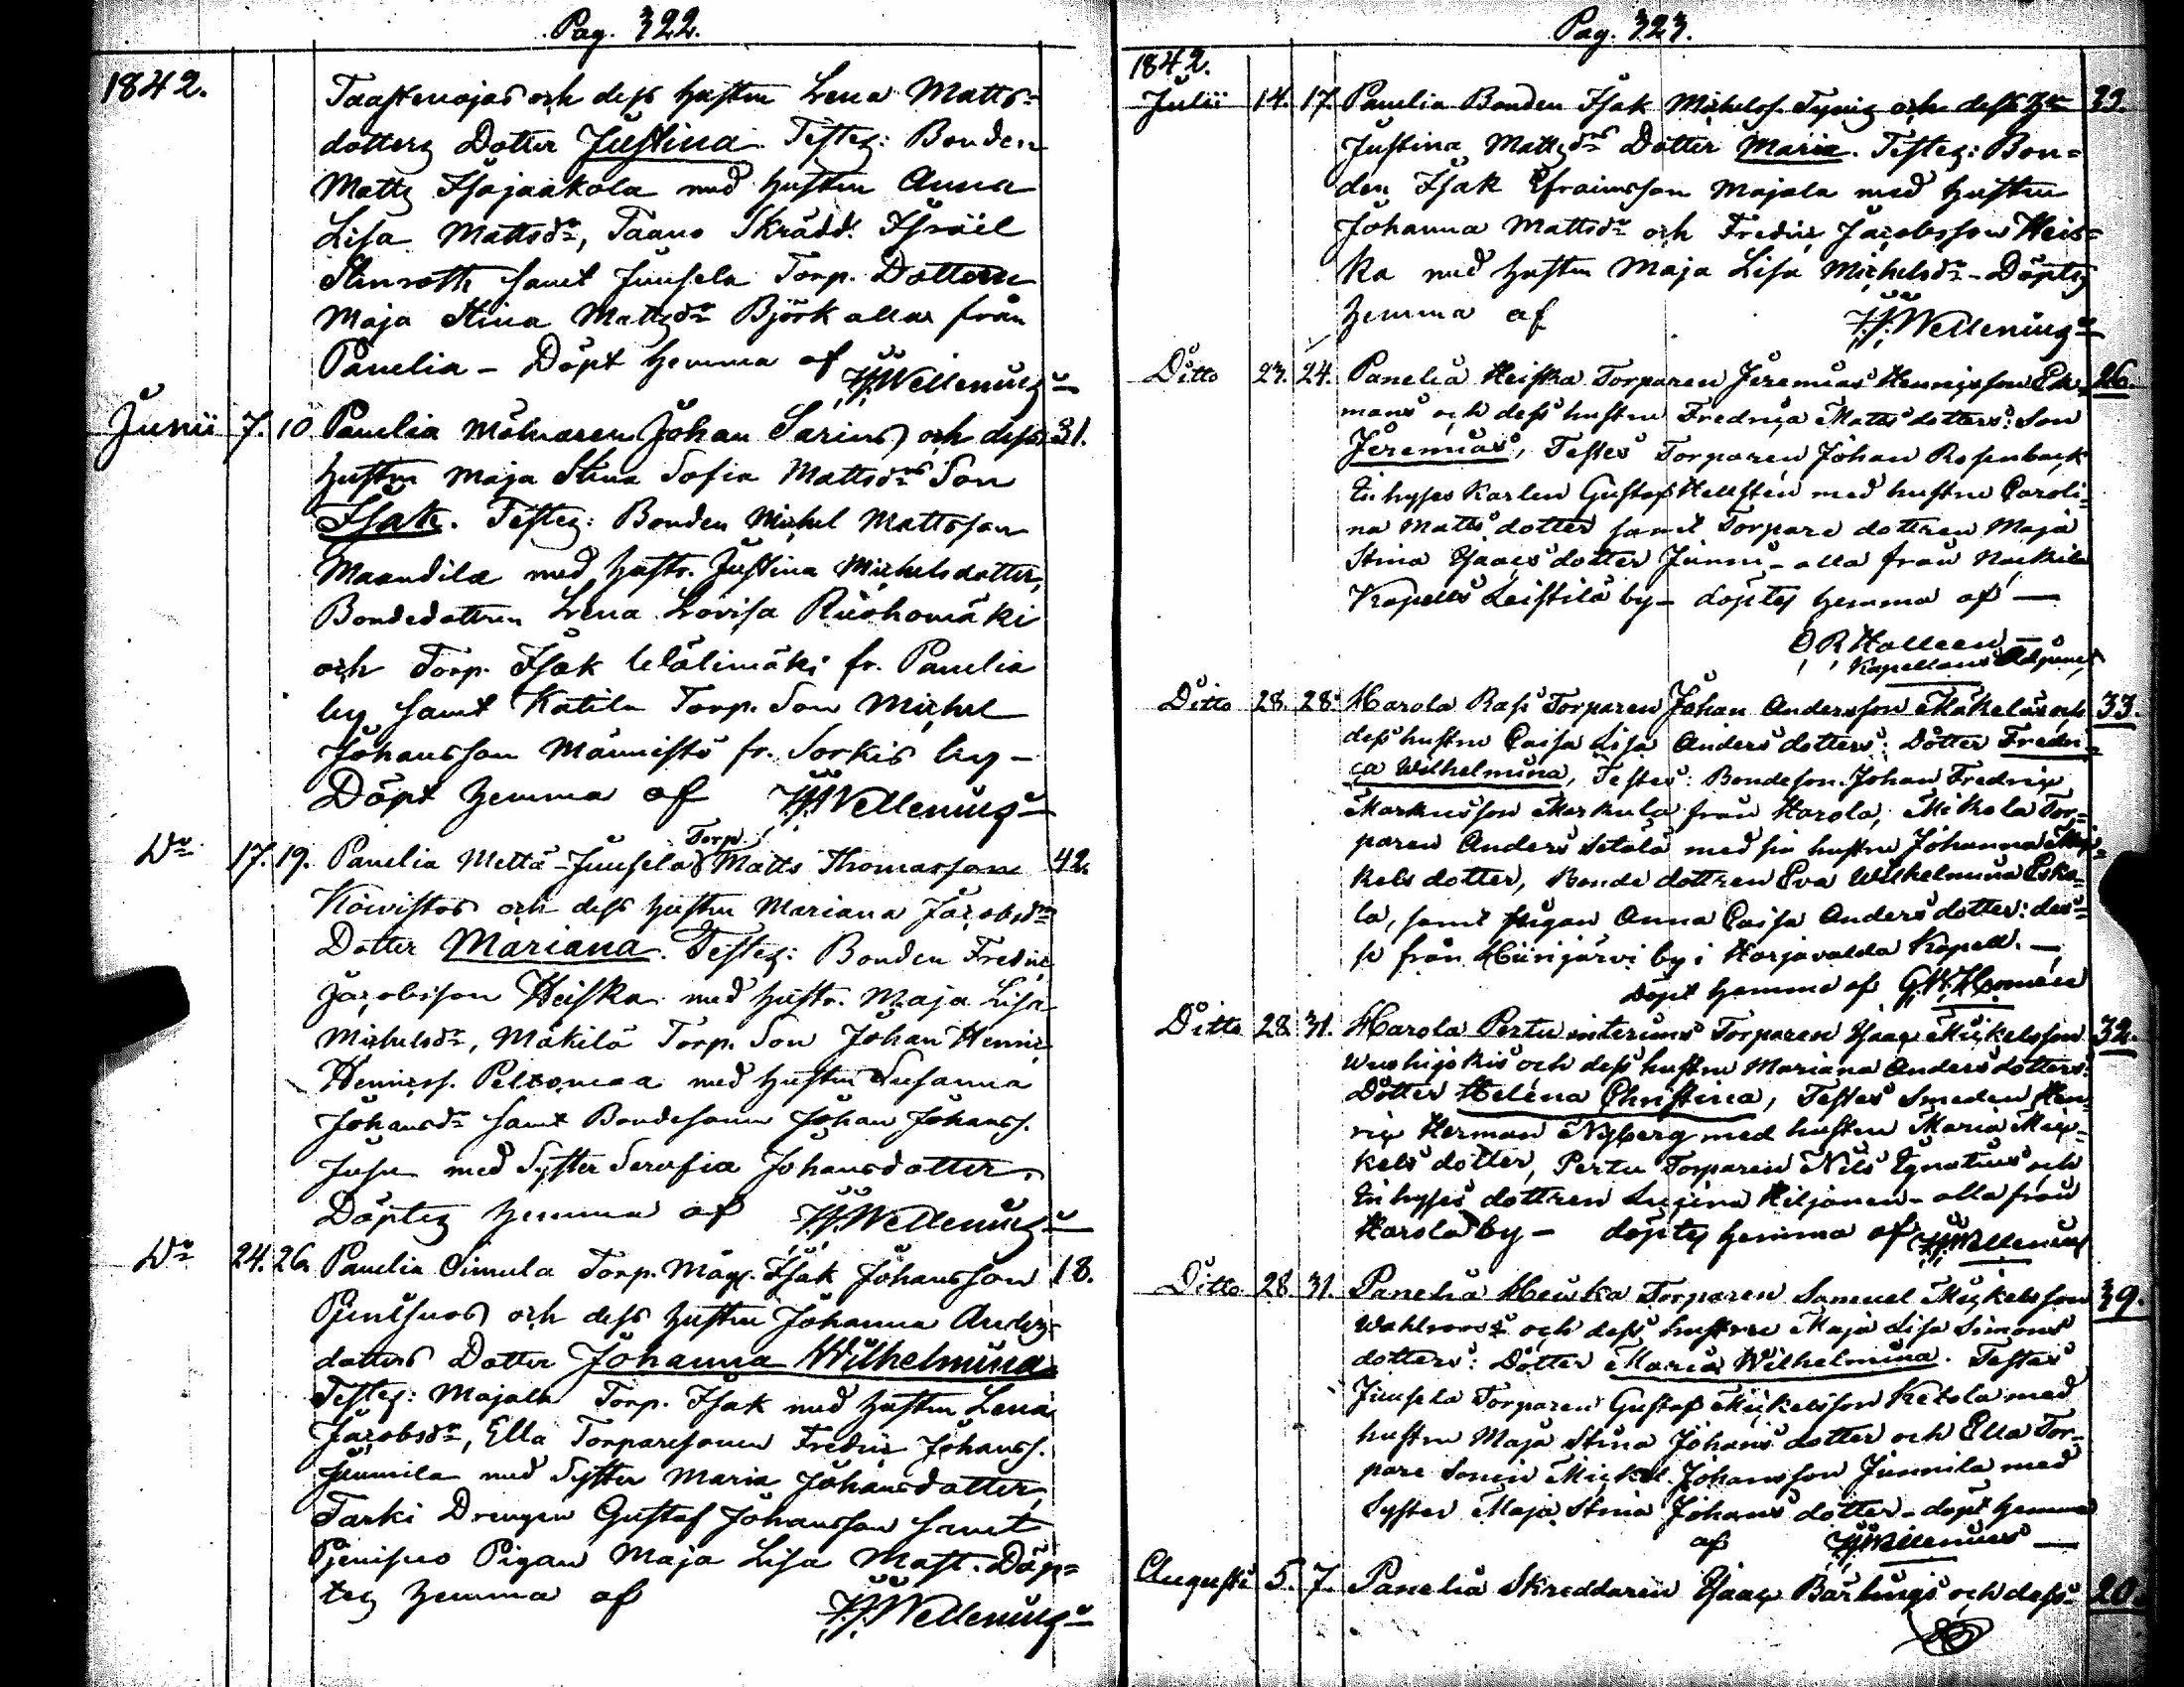 Pag. 322.
1842.
Taastenojas och dess hustru Lena Matts-
dotters Dotter Justina. Testes: Bonden
Matts Isojaakola med hustru Anna
Lisa Mattsdr, Taano Skrädd. Israel
Stenroth samt Juusela Torp. Dottern
Maja Stina Mattsdr Björk allar från
Panelia - Döpt hemma af H.J. Wellenius
Junii 7. 10 Panelia Mölnaren Johan Sarins och dess 31.
hustru Maja Stina Sofia Mattsdrs Son
Isak. Testes: Bonden Michel Mattsson
Maandila med hustr. Justina Michelsdotter,
Bondedottren Lena Lovisa Ruohomäki
och Torp. Isak Wälimäki fr. Panelia
by samt Katila Torp. Son Michel
Johansson Männistö fr. Sorkis by -
Döpt hemma af H.J. Wellenius
Do 17. 19. Panelia Mettä-Juusela Torp. Matts Thomasson 42.
Koivistos och dess hustru Mariana Jacobsdrs
Dotter Mariana. Testes: Bonden Fredric
Jacobsson Heiska med hustr. Maja Lisa
Michelsdr, Mäkilä Torp. Son Johan Henric
Henricss. Peltomaa med hustru Susanna
Johansdr samt Bondesonen Johan Johanss.
Jusu med Syster Serafia Johansdotter.
Döptes hemma af H.J. Wellenius
Do 24. 26. Panelia Cimula Torp. Måg. Isak Johansson 18.
och dess hustru Johanna Anders
dotters Dotter Johanna Wilhelmina
Testes: Majala Torp. Isak med hustru Lena
Jacobsdr, Ella Torparesonen Fredric Johanss.
Junnila med Syster Maria Johansdotter,
Tarki Drengen Gustaf Johansson samt
Pigan Maja Lisa Matt. Döp-
tes hemma af H.J. Wellenius
Pag. 323.
1842.
Julii 14. 17. Panelia Bonden Isak Michelss. och dess hu 39.
Justina Mattsdrs Dotter Maria. Testes: Bon-
den Isak Efraimsson Majala med hustru
Johanna Mattsdr och Fredric Jacobsson Heis-
ka med hustru Maja Lisa Michelsdr - Döptes
hemma af H.J. Wellenius
Ditto 23. 24. Panelia Heiska Torparen Jeremias Henricsson Ek- 26.
mans och dess hustru Fredrica Mattsdotters: Son
Jeremias, Testes Torparen Johan Rosenback
Inhyses Karlen Gustaf Hellsten med hustru Caroli-
na Mattsdotter samt Torpare dottren Maja
Stina Isaacsdotter Junnu - alla från Nackila
Kapells Leistilä by - döptes hemma af -
O R Halleen
Kapellans Adjunct
Ditto 28. 28. Harola Rasi Torparen Johan Andersson Mäkeläs och 33.
dess hustru Caisa Lisa Andersdotters: Dotter Fredri-
ca Wilhelmina, Testes: Bondeson Johan Fredric
Markusson Markula från Harola, Mikola Tor-
paren Anders Setälä med sin hustru Johanna Mic-
kelsdotter, Bonde dottren Eva Wilhelmina Eska-
la, samt pigan Anna Caisa Andersdotter: des-
se från Hiirijärvi by i Harjavalda Kapell. -
döpt hemma af G.H. Homén
Ditto 28. 31. Harola Pertu interims Torparen Isaac Mickelsson 32.
och dess hustru Mariana Andersdotters:
Dotter Helena Christina, Testes Smeden Hen-
ric Herman Nyberg med hustru Maria Mic-
kelsdotter, Pertu Torparen Nils Ignatius och
Inhyses dottren Lugina Hiljanen - alla från
Harola by - döptes hemma af H.J. Wellenius
Ditto 28. 31. Panelia Heiska Torparen Samuel Mickelsson 39.
Wahlroos's och dess hustru Maja Lisa Simons
dotters: Dotter Maria Wilhelmina. Testes
Juusela Torparen Gustaf Mickelsson Ketola med
hustru Maja Stina Johansdotter och Ella Tor-
pare Sonen Mickel Johansson Junnila med
Syster Maja Stina Johansdotter - döpt hemma
af H.J. Wellenius -
Augusti 5. 7. Panelia Skreddaren Isaac Bärlungs och dess 20.